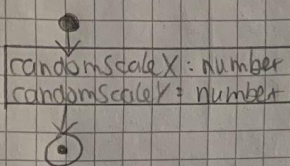 randomScaleX : number
randomScaleY : number